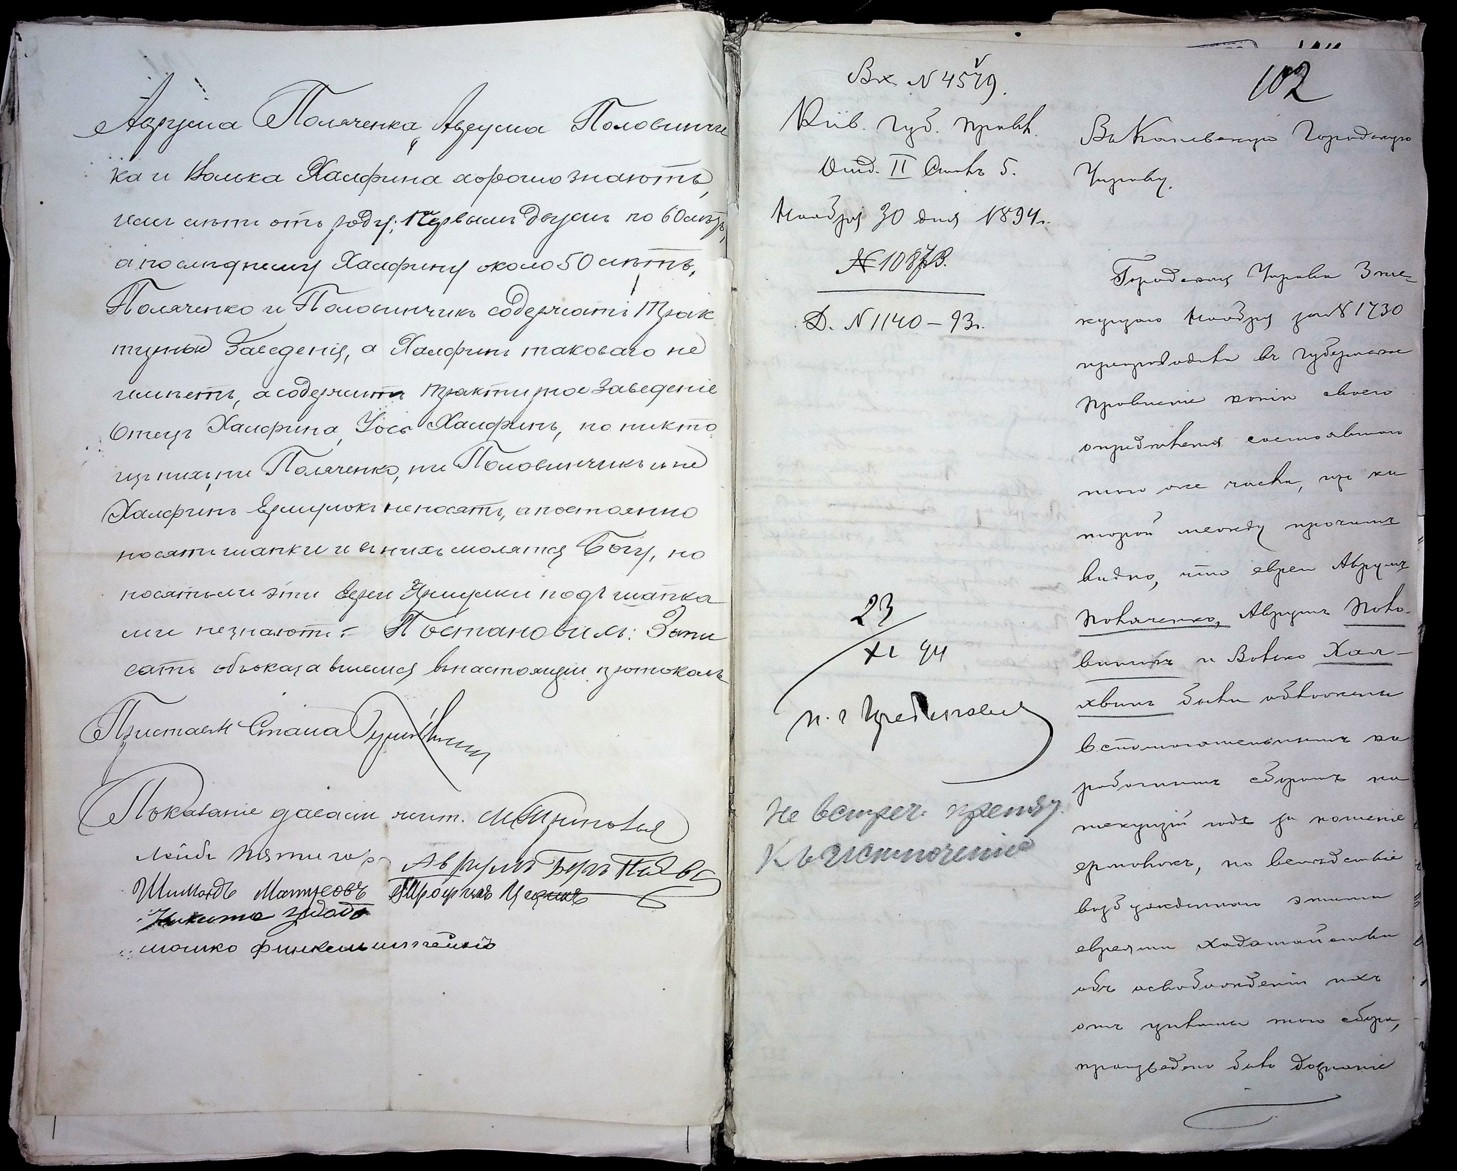 Аврума Поляченка, Аврума Половинчи
ка и Волька Халфина хорошо знаютъ,
имъ лѣтъ отъ роду: Первымъ двумъ по 60 лѣтъ,
а послѣднему Халфину около 50 лѣтъ,
Поляченко и Половинчикъ содержатъ Трак
тирныя Заведенія, а Халфинъ таковаго не
имѣетъ, а содержитъ трактирное Заведеніе
Отецъ Халфина, Іось Халфинъ, но никто
изъ нихъ, ни Поляченко, ни Половинчикъ и не
Халфинъ Ермулокъ не носятъ, а постоянно
носятъ шапки и въ нихъ молятся Богу, но
носятъ ли эти Евреи Ермулки подъ шапка
ми не знаютъ. Постановилъ: Запи
сать объ оказавшемся въ настоящій протоколъ
Приставъ Стана
Показаніе давали чит.
Лейбъ Пятигор
Аврумъ Беръ
Шимонъ Матусовъ
Никита
мошко финкельштейнъ
Вх N 4579.
102
Кіів. Губ. Правл.
Отд. II Столъ 5.
Ноября 30 дня 1894г.
N 10873.
Д. N 1140 – 93г.
Въ Каневскую Городскую
Управу.
Городская Управа 3 те-
кущаго Ноября за N 1730
препроводила въ Губернское
Правленіе копію своего
опредѣленія состоявшаго
того же числа, изъ ко
торой между прочимъ
видно, что евреи Аврумъ
Поляченко, Аврумъ Поло-
винчикъ и Волько Хал-
хвинъ были обложены
вспомогательнымъ ко
робочнымъ сборомъ на
текущій годъ за ношеніе
ермолокъ, но вслѣдствіе
возбужденнаго этими
евреями ходатайства
объ освобожденіи ихъ
отъ уплаты того сбора,
произведено было дознаніе
23
XI 94
Не встреч. препят.
Къ исключенію